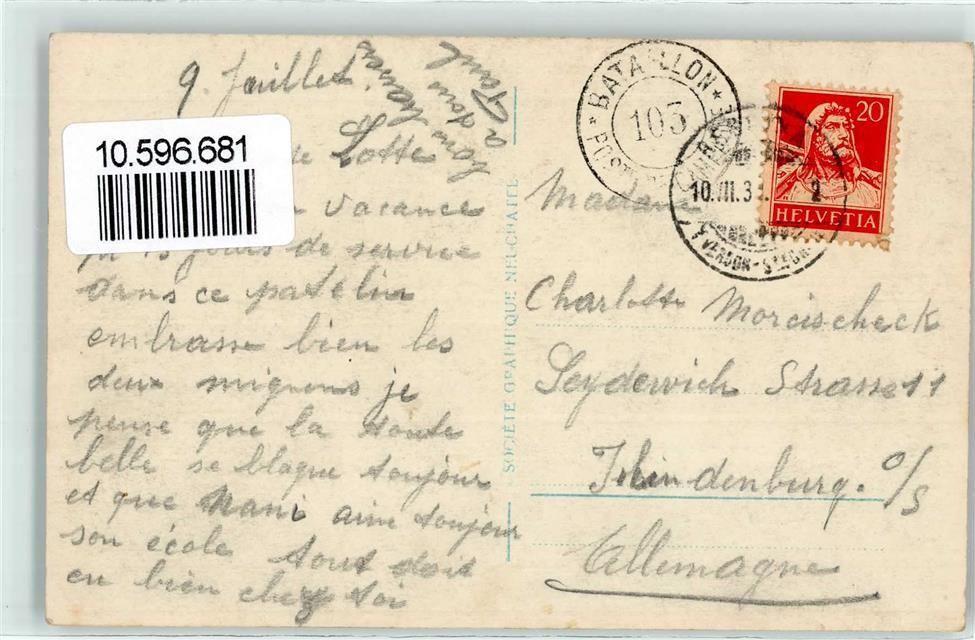 9. Juillet.
10.596.681
de Lotte
vacance
15 jours de service
dans ce patelin
embrasse bien les
deux mignons je
pense que la toute
belle se blague toujour
et que Nani aime toujour
son école tout doit
en bien chez toi
a ton
Paul
SOCIÉTÉ GRAPHIQUE NEUCHATEL
* BATAILLON *
103
20
HELVETIA
10.VII.3
2
YVERDON-STE CR
Madame
Charlotte Morcischeck
Seydervich Strasse 11
Hindenburg. o/s
Allemagne